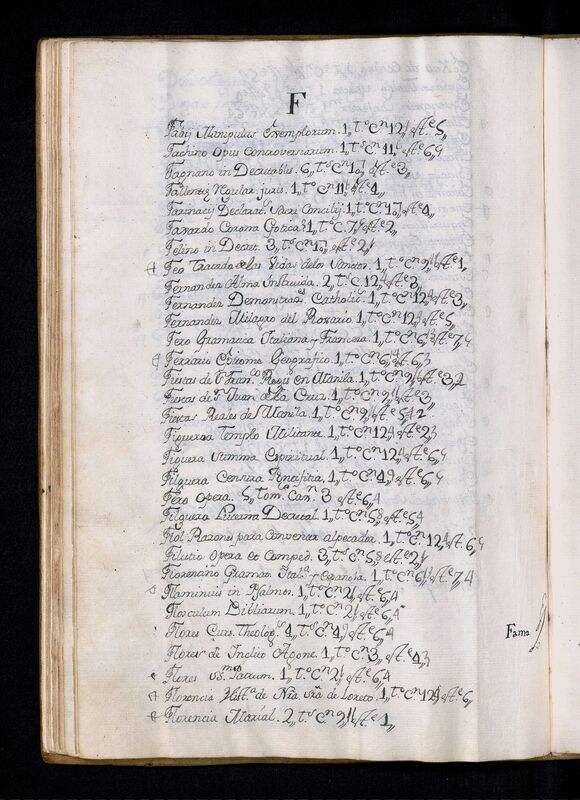 F
Fabij Manipulus Exemplorum. 1,, t.º C.n 12,, Et.e 5,,
Fachino Opus Controversiarum. 1,, t.º C.n 11,, Et.e 6,,
Fagnano in Decretales. 6,, t.s C.n 10,, Et.e 3,,
Fallentes Regular. juris. 1,, t.º C.n 11,, Et.e 4,,
Farinacij Declarat.s Sacri Concilij. 1,, t.º C.n 10,, Et.e 4,,
Faxardo Corona Gotica. 1,, t.º C. 7,, Et.e 2,,
Felino in Decret. 3,, t.s C.n 10,, Et.e 2,,
Feo Tratado de las Vidas de los Santos. 1,, t.º C.n 9,, Et.e 1,,
Fernandez Alma Instruida. 2,, t.s C. 12,, Et.e 3,,
Fernandez Demonstrac.s Catholic.s 1,, t.º C.n 12,, Et.e 3,,
Fernandez Milagro del Rosario. 1,, t.º C.n 12,, Et.e 5,,
Fero Gramatica Italiana y Francesa. 1,, t.º C.n 6,, Et.e 7,,
Ferrario Epitome Geografico. 1,, t.º C.n 6,, Et. 6,,
Fiestas de S. Fran.co Regis en Manila. 1,, t.º C.n 9,, Et.e 3,,
Fiestas de S.n Juan de la Cruz. 1,, t.º C.n 9,, Et.e 3,,
Fiestas Reales de Manila. 1,, t.º C.n 9,, Et.e
Figueroa Templo Militante. 1,, t.º C.n 12,, Et.e
Figuera Summa Espiritual. 1,, t.º C.n 12,, Et.e 6,,
Filguera Censura Pontifitia. 1,, t.º C.n Et.e 6,,
Fero Opera. 5,, Tom. Can.n 3 Et.e 6,,
Filguera Lucerna Decretal. 1,, t.º C.n Et.e 5,,
Fiol Razones para Convencer al pecador. 1,, t.º C.n 12,, Et. 6,,
Filutio Opera et Comped. 3,, t.s C.n Et.e 2,,
Florencino Gramat. Ital.ª y Española. 1,, t.º C.n 6,, Et.e 7,,
Flaminius in Psalmos. 1,, t.º C.n 2,, Et.e 6,,
Flosculum Bibliarum. 1,, t.º C.n 2,, Et.e 6,,
Flores Curs. Theolog.s 4,, t.s C.n Et.e 6,,
Flores de Inclito Agone. 1,, t.º C.n 3,, Et.e
Flores SS.m Patrum. 1,, t.º C.n 2,, Et.e 6,,
Florencia Hist.ª de Nrâ Srâ. de Loreto. 1,, t.º C.n 12,, Et.e 6,,
Florencia Marial. 2,, t.s C.n 9,, Et.e 1,,
Fama